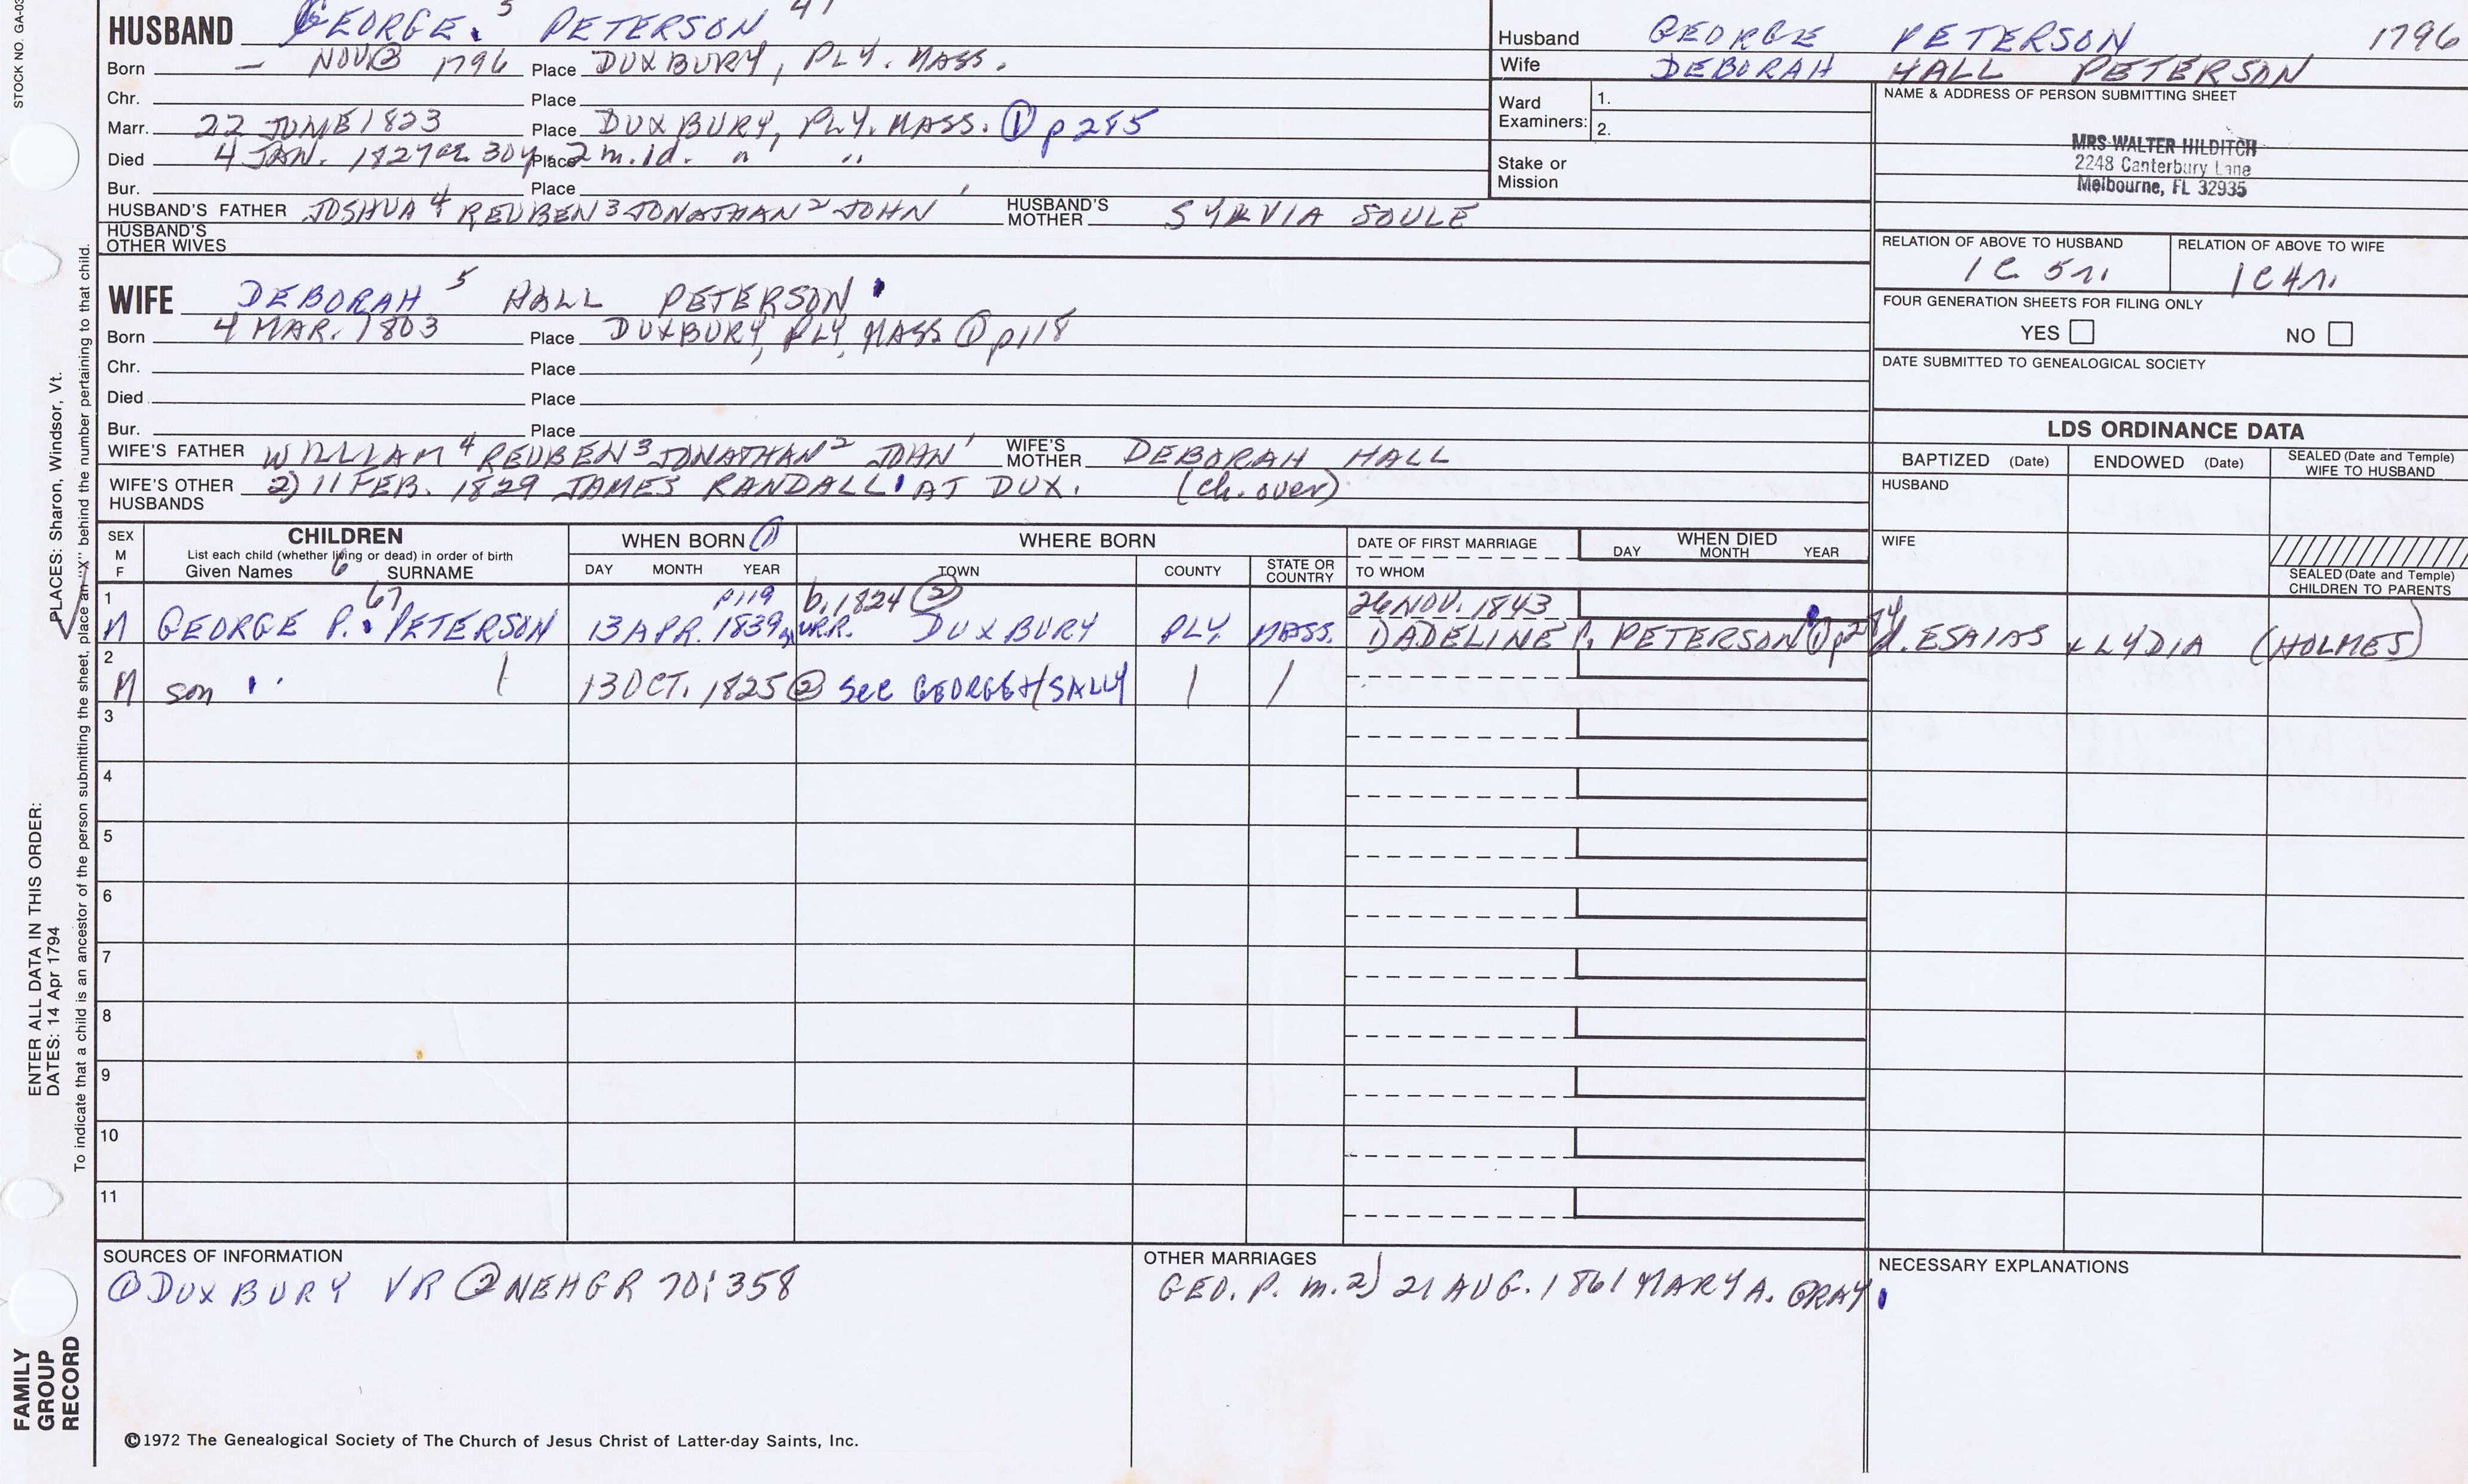 STOCK NO. GA-03
5 41
HUSBAND GEORGE. PETERSON
Born — NOV 1796 Place DUXBURY, PLY. MASS.
Chr. Place
Marr. 22 JUNE 1823 Place DUXBURY, PLY. MASS. ① p 285
Died 4 JAN. 1827 30y Place 2m. 1d. " "
Bur. Place
HUSBAND'S FATHER JOSHUA 4 REUBEN 3 JONATHAN 2 JOHN ' HUSBAND'S MOTHER SYLVIA SOULE
HUSBAND'S OTHER WIVES
WIFE DEBORAH 5 HALL PETERSON
Born 4 MAR. 1803 Place DUXBURY, PLY, MASS ① p118
Chr. Place
Died Place
Bur. Place
WIFE'S FATHER WILLIAM 4 REUBEN 3 JONATHAN 2 JOHN ' WIFE'S MOTHER DEBORAH HALL
WIFE'S OTHER HUSBANDS 2) 11 FEB. 1829 JAMES RANDALL AT DUX. (ch. over)
Husband GEORGE PETERSON 1796
Wife DEBORAH HALL PETERSON
Ward Examiners: 1.
2.
Stake or Mission
NAME & ADDRESS OF PERSON SUBMITTING SHEET
MRS WALTER HILDITCH
2248 Canterbury Lane
Melbourne, FL 32935
RELATION OF ABOVE TO HUSBAND RELATION OF ABOVE TO WIFE
1C 5r. 1C4r.
FOUR GENERATION SHEETS FOR FILING ONLY
YES NO
DATE SUBMITTED TO GENEALOGICAL SOCIETY
LDS ORDINANCE DATA
BAPTIZED (Date) ENDOWED (Date) SEALED (Date and Temple) WIFE TO HUSBAND
HUSBAND
WIFE
SEALED (Date and Temple) CHILDREN TO PARENTS
SEX M F
CHILDREN
List each child (whether living or dead) in order of birth
Given Names 6 SURNAME
WHEN BORN ①
DAY MONTH YEAR
WHERE BORN
TOWN COUNTY STATE OR COUNTRY
DATE OF FIRST MARRIAGE
TO WHOM
WHEN DIED
DAY MONTH YEAR
1 67 p119 b. 1824 ② 26 NOV. 1843
M GEORGE P. PETERSON 13 APR. 1839 DUXBURY PLY. MASS. PETERSON ① p284 d. ESAIAS & LYDIA (HOLMES)
2
M son 13 OCT. 1825 ② see GEORGE + SALLY
3
4
5
6
7
8
9
10
11
SOURCES OF INFORMATION
① DUXBURY VR ② NEHGR 70:358
OTHER MARRIAGES
GEO. P. m. 2) 21 AUG. 1861 MARY A. GRAY
NECESSARY EXPLANATIONS
©1972 The Genealogical Society of The Church of Jesus Christ of Latter-day Saints, Inc.
PLACES: Sharon, Windsor, Vt.
ENTER ALL DATA IN THIS ORDER:
DATES: 14 Apr 1794
To indicate that a child is an ancestor of the person submitting the sheet, place an "X" behind the number pertaining to that child.
FAMILY
GROUP
RECORD